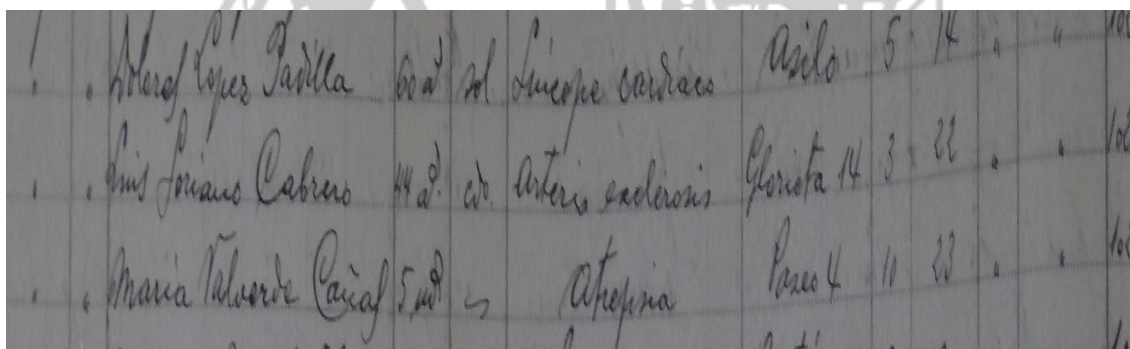 " " Dolores López Padilla 60 aº sol Síncope cardíaco Asilo 5 14 " "
" " Luis Soriano Cabrero 44 aº cdo. Arterio esclerosis Glorieta 14 3 22 " "
" " María Valverde Cañas 5 mº Atrepsia Paseo 4 11 23 " "